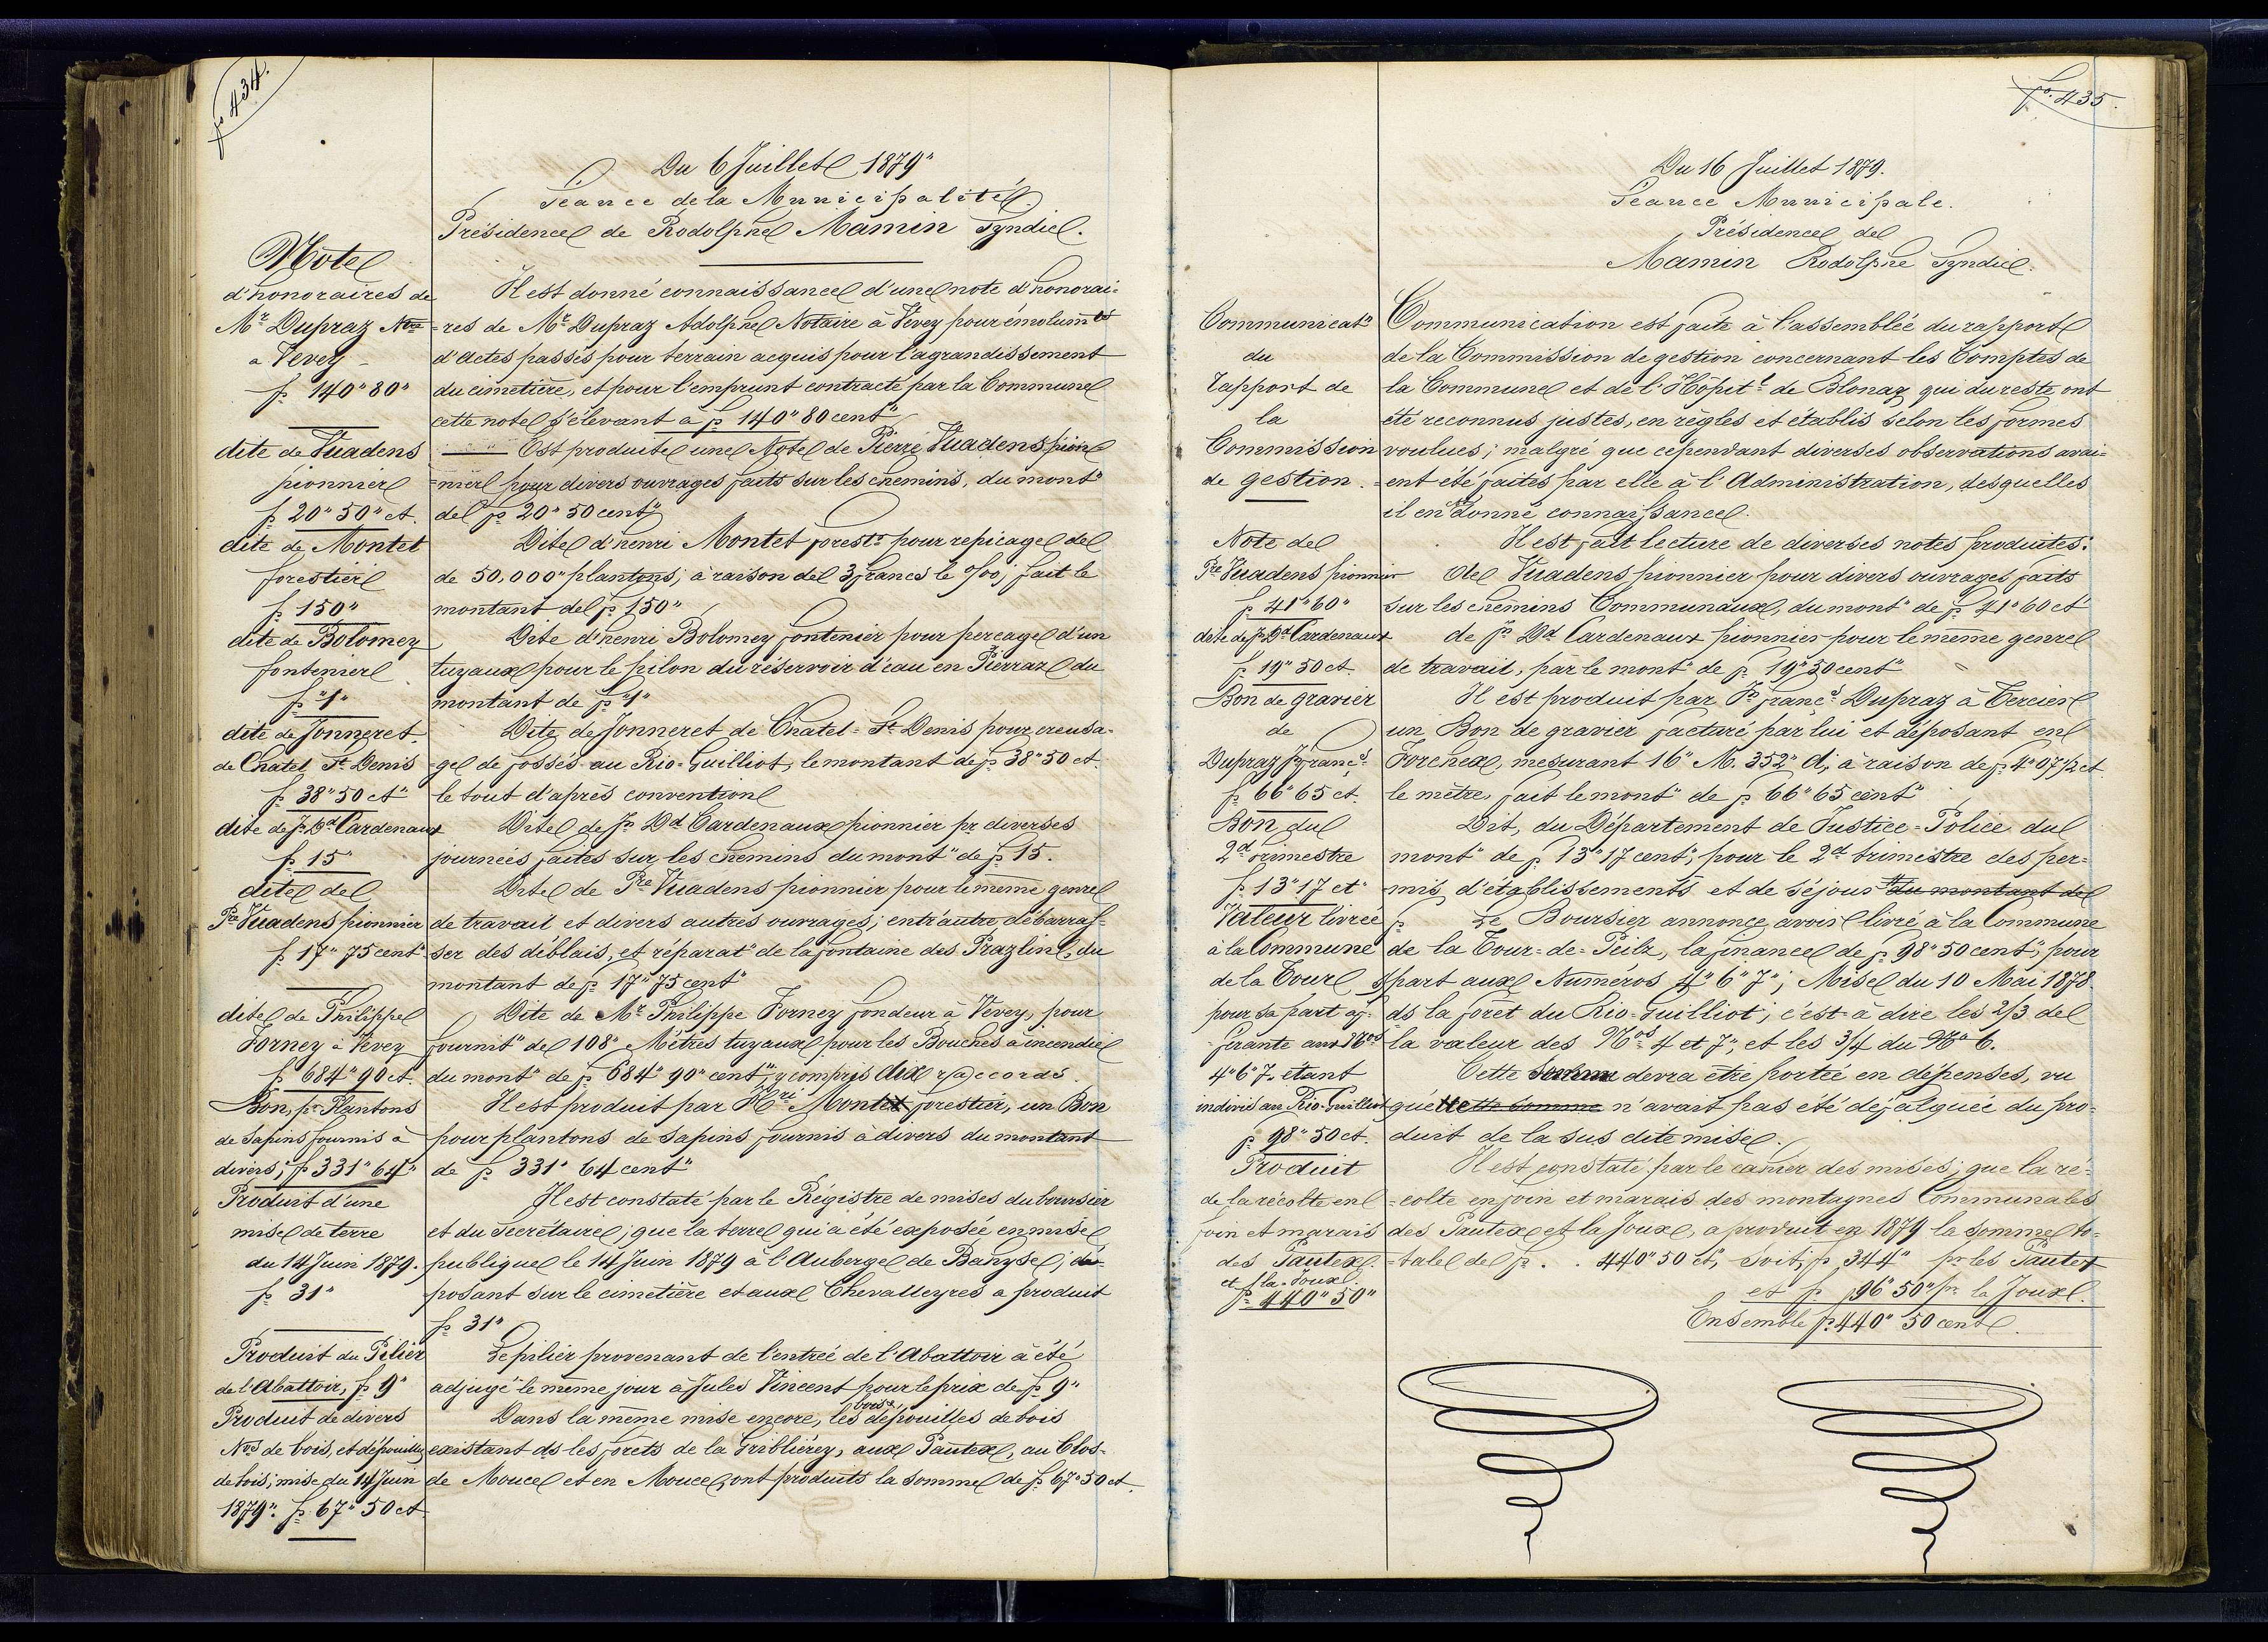 fo 434.
Du 6 Juillet 1879"
Séance de la Municipalité.
Présidence de Rodolphe Mamin Syndic.
Note
d'honoraires de
Mr Dupraz Nre
a Vevey
fr 140" 80"
Il est donné connaissance d'une note d'honorai-
=res de Mr Dupraz Adolphe Notaire à Vevey pour émolumts
d'Actes passés pour terrain acquis pour l'agrandissement
du cimetière, et pour l'emprunt contracté par la Commune
cette note s'élevant à fr 140" 80 cent"
dite de Vuadens
pionnier
fr 20" 50" ct.
Est produite une Note de Pierre Vuadens pion-
=nier pour divers ouvrages faits sur les chemins, du mont"
de fr 20" 50 cent"
dite de Montet
forestier
fr 150"
Dite d'henri Montet forestr pour repicage de
de 50,000" plantons; à raison de 3 francs le o/oo; fait le
montant de fr 150"
dite de Bolomey
fontenier
fr "1"
Dite d'henri Bolomey fontenier pour percage d'un
tuyaux pour le pilon du réservoir d'eau en Pierraz du
montant de fr "1"
dite de Jonneret
de Chatel St Denis
fr 38" 50 ct"
Dite de Jonneret de Chatel=St Denis pour creusa-
=ge de fossés au Rio=Guilliot, le montant de fr 38" 50 ct.
le tout d'après convention
dite de Jn Dd Cardenaux
fr 15"
Dite de Jn Dd Cardenaux pionnier pr diverses
journées faites sur les chemins du mont" de fr 15.
dite de
Pre Vuadens pionnier
fr 17" 75 cent"
Dite de Pre Vuadens pionnier pour le même genre
de travail et divers autres ouvrages; entr'autre débarras-
ser des déblais, et réparat" de la fontaine des Prazlin, du
montant de fr 17" 75 cent"
dite de Philippe
Forney à Vevey
fr 684" 90 ct.
Dite de Mr Philippe Forney fondeur à Vevey, pour
fournit" de 108" Mètres tuyaux pour les Bouches à incendie
du mont" de fr 684" 90" cent", y compris dix raccords.
Bon, pr Plantons
de sapins fournis à
divers; fr 331" 64"
Il est produit par Hri Montet forestier, un Bon
pour plantons de sapins fournis à divers du montant
de fr 331" 64 cent"
Produit d'une
mise de terre
du 14 Juin 1879.
fr 31"
Il est constaté par le Régistre de mises du boursier
et du Secrétaire; que la terre qui a été exposée en mise
publique le 14 Juin 1879 à l'Auberge de Bahyse; dé-
posant sur le cimetière et aux Chevalleyres a produit
fr 31"
Produit du Pilier
de l'Abattoir, fr 9"
Le pilier provenant de l'entrée de l'Abattoir à été
adjugé le même jour à Jules Vincent pour le prix de fr 9"
Produit de divers
Nos de bois, et dépouilles
de bois; mise du 14 Juin
1879". fr 67" 50 ct
Dans la même mise encore, les dépouilles de bois
existant ds les forêts de la Griblièrey, aux Pautex, au Clos-
de Mouce et en Mouce, ont produits la somme de fr 67" 50 ct.
fo. 435.
Du 16 Juillet 1879.
Séance Municipale.
Présidence de
Mamin Rodolphe Syndic.
Communicat"
du
rapport de
la
Commission
de gestion.
Communication est faite à l'assemblée du rapport
de la Commission de gestion concernant les Comptes de
la Commune et de l'Hôpitl de Blonay qui du reste ont
été reconnus justes, en règles et établis selon les formes
voulues; malgré que cependant diverses observations avai-
=ent été faites par elle à l'Administration, desquelles
il en est donné connaissance.
Note de
Pre Vuadens pionnier
fr 41" 60"
Il est fait lecture de diverses notes produites:
de Vuadens pionnier pour divers ouvrages faits
sur les chemins Communaux, du mont" de fr 41" 60 ct
dite de Jn Dd Cardenaux
fr 19" 50 ct.
de Jn Dd Cardenaux pionnier pour le même genre
de travail, par le mont" de fr 19" 50 cent"
Bon de gravier
de
Dupraz Jn Françs
fr 66" 65 ct.
Il est produit par Jn Françs Dupraz à Tercier
un Bon de gravier facturé par lui et déposant en
Forchex, mesurant 16" M. 352" d; à raison de fr 4" 07 1/2 ct
le mètre, fait le mont" de fr 66" 65 cent"
Bon du
2d trimestre
fr 13" 17 ct
Dit, du Département de Justice=Police du
mont" de fr 13" 17 cent", pour le 2d trimestre des per-
=mis d'établissements et de séjour du montant de
fr
Valeur livrée
à la Commune
de la Tour
pour sa part af-
férante aux Nos
4" 6" 7. étant
indivis au Rio-Guilliot
fr 98" 50 ct.
Le Boursier annonce avoir livré à la Commune
de la Tour=de=Peilz, la finance de fr 98" 50 cent", pour
sa part aux Numéros 4" 6" 7"; Mise du 10 Mai 1878
ds la forêt du Rio-Guilliot; c'est-à dire les 2/3 de
la valeur des Nos 4 et 7", et les 3/4 du No 6.
Cette somme devra être portée en dépenses, vu
que cette somme n'avait pas été défalquée du pro-
duit de la sus dite mise.
Produit
de la récolte en
foin et marais
des Pautex
et la Joux.
fr 440" 50"
Il est constaté par le cahier des mises, que la ré-
=colte en foin et marais des montagnes Communales
des Pautex et la Joux, a produit en 1879 la somme to-
=tale de fr . . 440" 50 ct, soit; fr 344" pr les Pautex
et fr 96" 50" pr la Joux.
Ensemble fr 440" 50 cent.